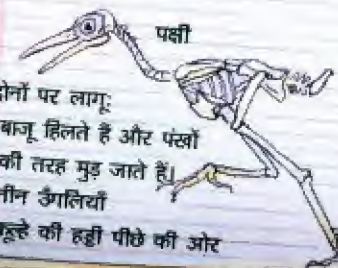 पक्षी
दोनों पर लागू:
बाजू हिलते हैं और पंखों
की तरह मुड़ जाते हैं।
तीन उँगलियाँ
कूल्हे की हड्डी पीछे की ओर